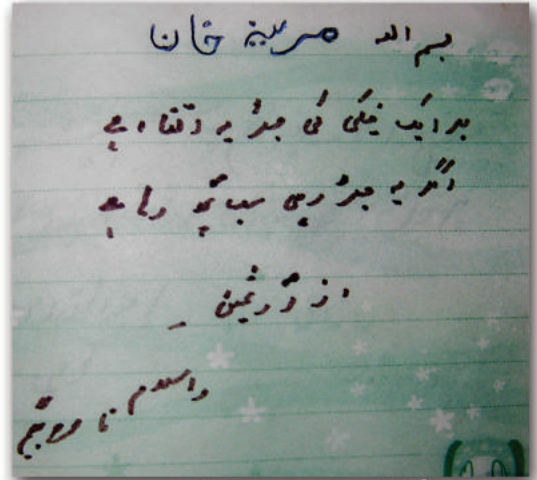 بسم الله مرینہ خان
ہر ایک نیکی کی جڑ یہ اتقاء ہے
اگر یہ جڑ رہی سب کچھ رہا ہے
از درثمین
والسلام